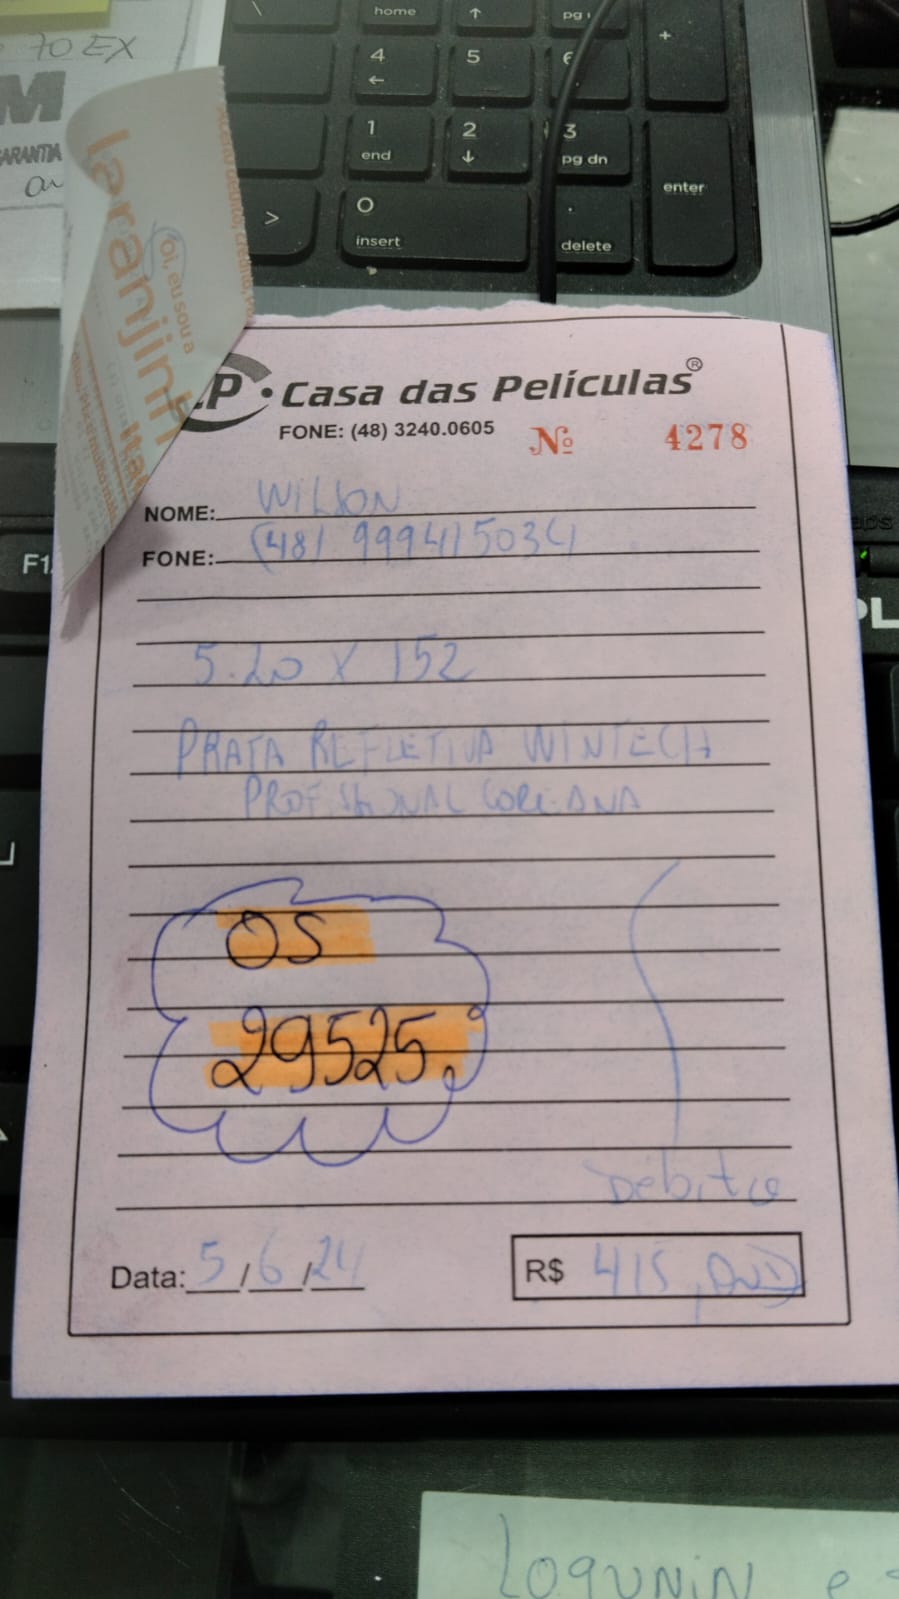 70 EX
M
GARANTIA
\
home
↑
pg
+
4
←
5
6
1
end
2
↓
3
pg dn
enter
>
0
insert
.
delete
laranjinh
oi, eu sou a
P. Casa das Películas®
FONE: (48) 3240.0605
Nº 4278
NOME: WILSON
FONE: (48) 999415034
F1
PL
5.20 X 152
PRATA REFLETIVA WINTECH
PROFISIONAL COREANA
OS
29525.
Débito
Data: 5/6/24
R$ 415,00
LOQUNIN e